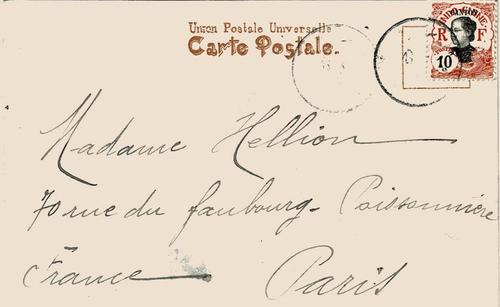 Union Postale Universelle
Carte Postale.
INDO-CHINE
R F
10
Madame Hellion
70 rue du faubourg-Poissonnière
France Paris